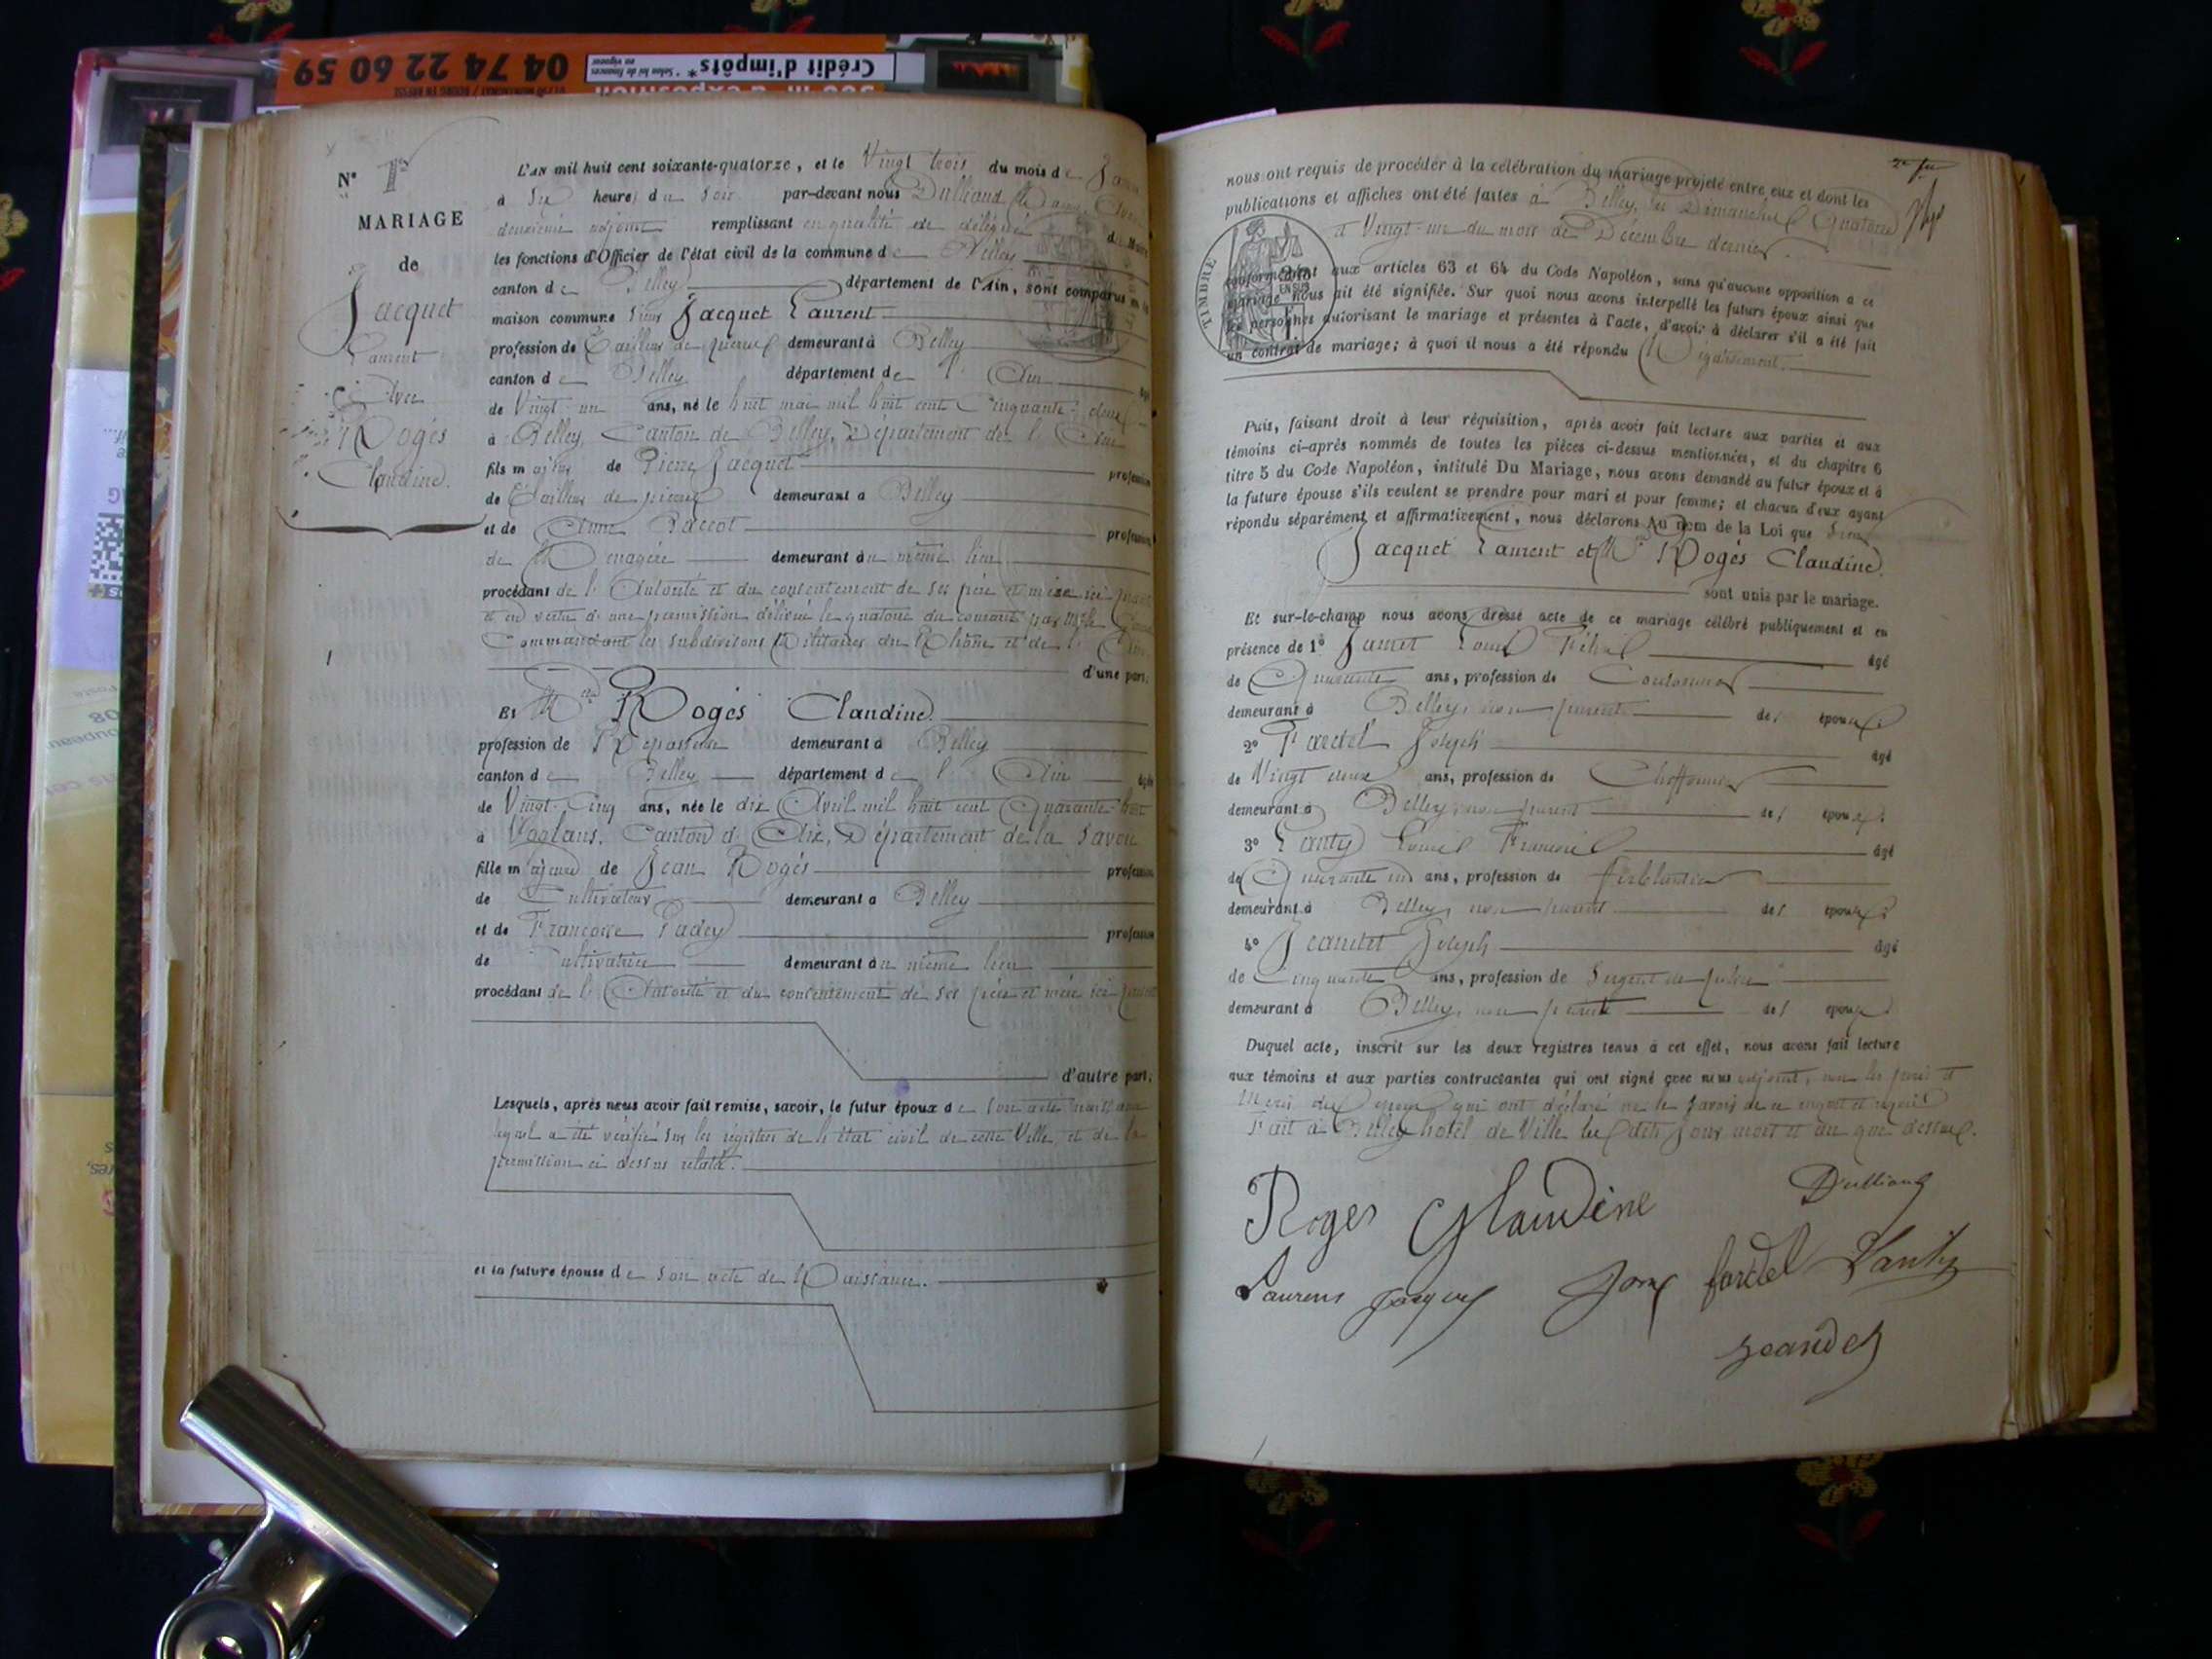 04 74 22 60 59
Crédit d'impôts*
* Selon loi de finances
en vigueur
N° 1er
MARIAGE
de
Jacquet
Laurent
Avec
Rogès
Claudine.
L'AN mil huit cent soixante-quatorze, et le Vingt trois du mois de
à Six heures du soir par-devant nous Dulliand
deuxième adjoint remplissant en qualité de délégué du Maire
les fonctions d'Officier de l'état civil de la commune de Belley
canton de Belley département de l'Ain, sont comparus en la
maison commune Sieur Jacquet Laurent
profession de Tailleur de pierres demeurant à Belley
canton de Belley département de l'Ain âgé
de Vingt-un ans, né le huit mai mil huit cent Cinquante-deux
à Belley, Canton de Belley, Département de l'Ain
fils majeur de Pierre Jacquet profession
de Tailleur de pierres demeurant à Belley
et de Anne Baccot profession
de Ménagère demeurant au même lieu
procédant de l'Autorité et du consentement de ses père et mère ici
et en vertu d'une permission délivrée le quatorze du courant par Mr le
Commandant les Subdivisions Militaires du Rhône et de l'Ain
d'une part.
Et Mlle Rogès Claudine.
profession de Repasseuse demeurant à Belley
canton de Belley département de l'Ain âgée
de Vingt-Cinq ans, née le dix Avril mil huit cent Quarante-huit
à Voglans, Canton d'Aix, Département de la Savoie
fille majeure de Jean Rogès profession
de Cultivateur demeurant à Belley
et de Françoise Padey profession
de Cultivatrice demeurant au même lieu
procédant de l'Autorité et du consentement de ses père et mère ici
d'autre part.
Lesquels, après nous avoir fait remise, savoir, le futur époux de son acte
lequel a été vérifié sur les registres de l'état civil de cette Ville, et de la
permission ci dessus relatée.
et la future épouse de son acte de Naissance.
nous ont requis de procéder à la célébration du mariage projeté entre eux et dont les
publications et affiches ont été faites à Belley, les Dimanches Quatorze
et Vingt-un du mois de Décembre dernier
TIMBRE
conformément aux articles 63 et 64 du Code Napoléon, sans qu'aucune opposition à ce
mariage nous ait été signifiée. Sur quoi nous avons interpellé les futurs époux ainsi que
les personnes autorisant le mariage et présentes à l'acte, d'avoir à déclarer s'il a été fait
un contrat de mariage; à quoi il nous a été répondu Négativement.
Puis, faisant droit à leur réquisition, après avoir fait lecture aux parties et aux
témoins ci-après nommés de toutes les pièces ci-dessus mentionnées, et du chapitre 6
titre 5 du Code Napoléon, intitulé Du Mariage, nous avons demandé au futur époux et à
la future épouse s'ils veulent se prendre pour mari et pour femme; et chacun d'eux ayant
répondu séparément et affirmativement, nous déclarons Au nom de la Loi que Sieur
Jacquet Laurent et Mlle Rogès Claudine
sont unis par le mariage.
Et sur-le-champ nous avons dressé acte de ce mariage célébré publiquement et en
présence de 1°
de Quarante ans, profession de Cordonnier
demeurant à Belley, non parent des époux;
2° Fardel Joseph âgé
de Vingt deux ans, profession de
demeurant à Belley, non parent des époux;
3° Lanty Louis François âgé
de Quarante un ans, profession de Ferblantier
demeurant à Belley, non parent des époux;
4° Jeandet Joseph âgé
de Cinquante ans, profession de Sergent de police
demeurant à Belley, non parent des époux
Duquel acte, inscrit sur les deux registres tenus à cet effet, nous avons fait lecture
aux témoins et aux parties contractantes qui ont signé avec nous adjoint, non les pères et
Mères des époux qui ont déclaré ne le savoir de ce enquis et requis
Fait à Belley hôtel de Ville les dits jour mois et an que dessus.
Roges Glaudine Dulliand
Laurens Jacquet fardel Lanty
Jeandet